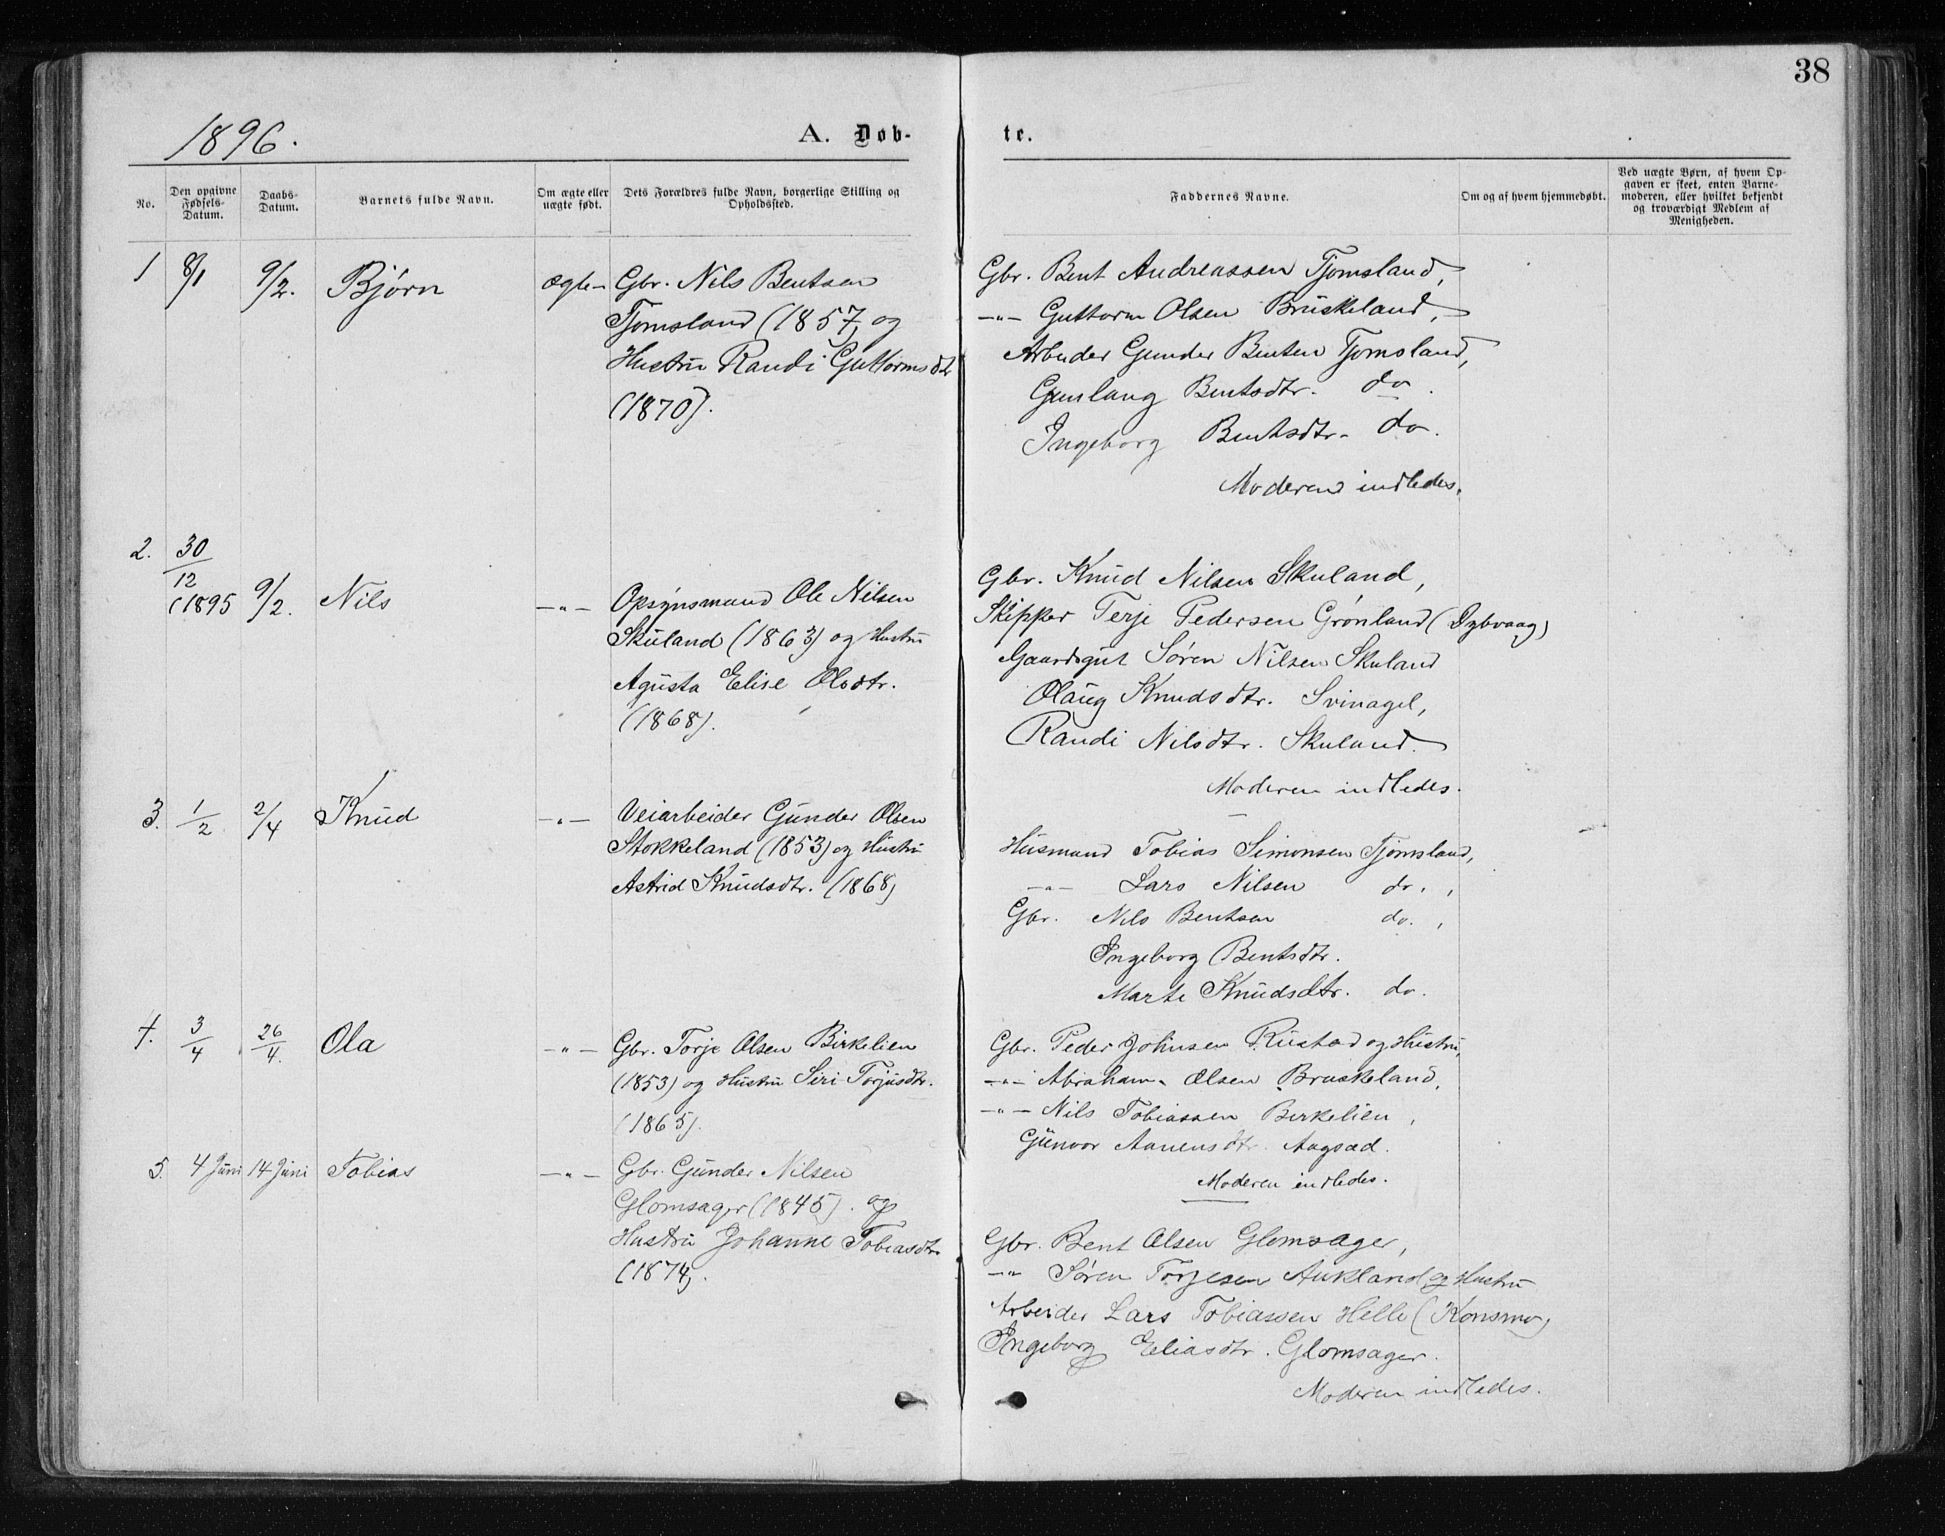 38
1896.
A. Døb-
te.
No.
Den opgivne Fødsels-Datum.
Daabs-Datum.
Barnets fulde Navn.
Om ægte eller uægte født.
Dets Forældres fulde Navn, borgerlige Stilling og Opholdssted.
Faddernes Navne.
Om og af hvem hjemmedøbt.
Ved uægte Børn, af hvem Opgaven er skeet, enten Barnemoderen, eller hvilket bekjendt og troværdigt Medlem af Menigheden.
1 8/1 9/2. Bjørn ægte – Gbr. Nils Bentsen
Tjomsland (1857) og
Hustru Randi Guttormsdtr
(1870).
Gbr. Bent Andreassen Tjomsland,
–"– Guttorm Olsen Bruskeland,
Arbeider Gunder Bentsen Tjomsland,
Gunlaug Bentsdtr. do.
Ingeborg Bentsdtr. do.
Moderen indledes.
2. 30/12 (1895 9/2. Nils –"– Opsynsmand Ole Nilsen
Skuland (1863) og Hustru
Agusta Elise Olsdtr.
(1868).
Gbr. Knud Nilsen Skuland,
Skipper Terje Pedersen Grønland (Dybvaag)
Gaardsgut Søren Nilsen Skuland
Olaug Knudsdtr. Svinagel,
Randi Nilsdtr. Skuland.
Moderen indledes.
3. 1/2 2/4 Knud –"– Veiarbeider Gunder Olsen
Stokkeland (1853) og Hustru
Astrid Knudsdtr. (1868)
Husmand Tobias Simonsen Tjomsland,
–"– Lars Nilsen do.,
Gbr. Nils Bentsen do.,
Ingeborg Bentsdtr.
Marte Knudsdtr. do.
4. 3/4 26/4. Ola –"– Gbr. Torje Olsen Birkelien
(1853) og Hustru Siri Torjusdtr.
(1865).
Gbr. Peder Johnsen Rustad og Hustru,
–"– Abraham Olsen Bruskeland,
–"– Nils Tobiassen Birkelien,
Gunvor Aanensdtr. Aagsæd.
Moderen indledes.
5. 4 Juni 14 Juni Tobias –"– Gbr. Gunder Nilsen
Glomsager (1845). og
Hustru Johanne Tobiasdtr
(1874).
Gbr. Bent Olsen Glomsager,
–"– Søren Torjesen Aukland og Hustru
Arbeider Lars Tobiassen Helle (Konsmo)
Ingeborg Eliasdtr. Glomsager.
Moderen indledes.